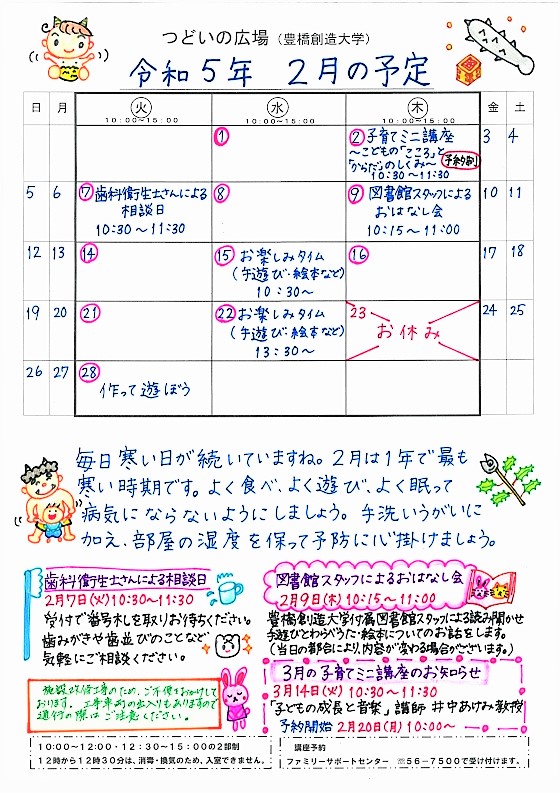 つどいの広場（豊橋創造大学）
令和5年 2月の予定
日 月 火 水 木 金 土
10:00～15:00 10:00～15:00 10:00～15:00
1 2 子育てミニ講座 3 4
～こどもの「こころ」と
「からだ」のしくみ～ 予約制
10:30～11:30
5 6 7 歯科衛生士さんによる 8 9 図書館スタッフによる 10 11
相談日 おはなし会
10:30～11:30 10:15～11:00
12 13 14 15 お楽しみタイム 16 17 18
（手遊び・絵本など）
10:30～
19 20 21 22 お楽しみタイム 23 24 25
（手遊び・絵本など） お休み
13:30～
26 27 28
作って遊ぼう
毎日寒い日が続いていますね。2月は1年で最も
寒い時期です。よく食べ、よく遊び、よく眠って
病気にならないようにしましょう。手洗いうがいに
加え、部屋の湿度を保って予防に心掛けましょう。
歯科衛生士さんによる相談日
2月7日(火)10:30～11:30
受付で番号札を取りお待ちください。
歯みがきや歯並びのことなど
気軽にご相談ください。
図書館スタッフによるおはなし会
2月9日(木)10:15～11:00
豊橋創造大学付属図書館スタッフによる読み聞かせ
手遊びとわらべうた・絵本についてのお話をします。
（当日の都合により、内容が変わる場合がございます。）
施設改修工事のため、ご不便をおかけして
おります。工事車両の出入りもありますので
通行の際はご注意ください。
3月の子育てミニ講座のお知らせ
3月14日(火)10:30～11:30
「子どもの成長と音楽」講師 井中あけみ教授
予約開始 2月20日(月)10:00～
10:00～12:00・12:30～15:00の2部制
12時から12時30分は、消毒・換気のため、入室できません。
講座予約
ファミリーサポートセンター ☎56-7500で受け付けます。